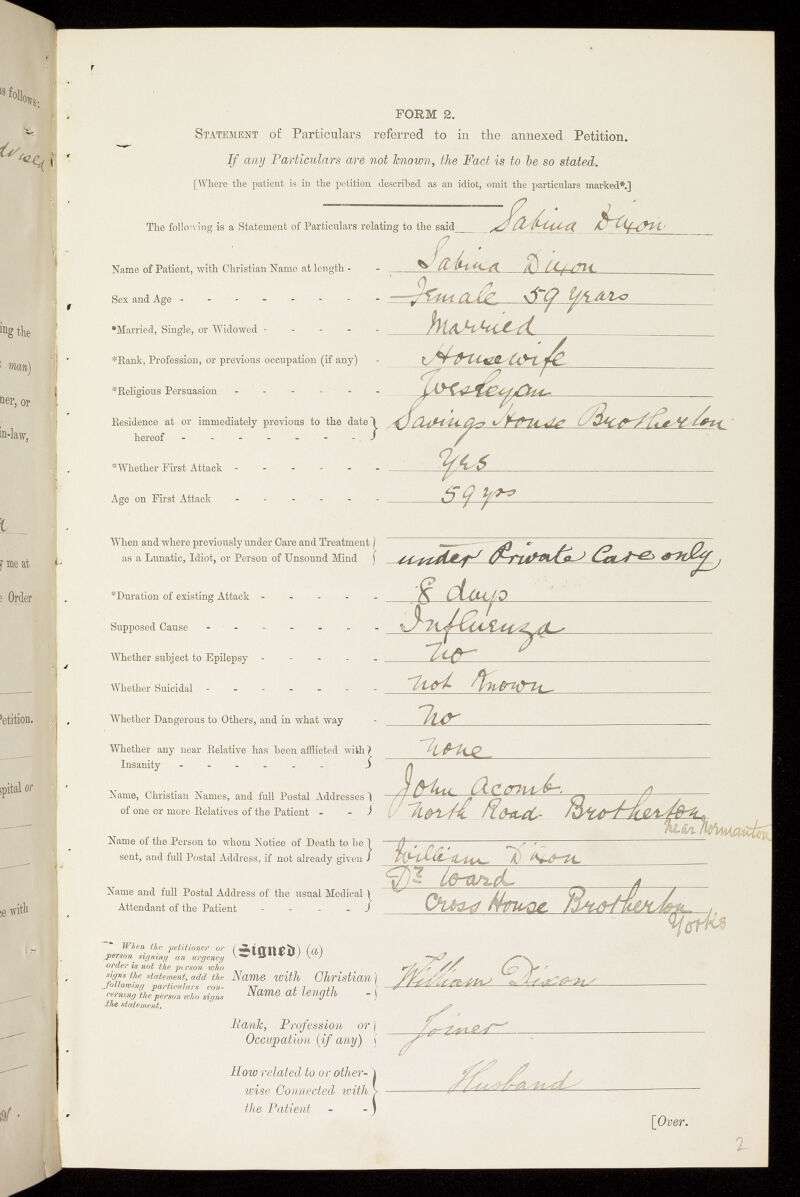 s follows:
dvised
ing the
man)
ner, or
n-law,
y me at
Order
Petition.
spital or
e with
FORM 2.
STATEMENT of Particulars referred to in the annexed Petition.
If any Particulars are not known, the Fact is to be so stated.
[Where the patient is in the petition described as an idiot, omit the particulars marked*.]
The following is a Statement of Particulars relating to the said Sabina Dixon
Name of Patient, with Christian Name at length - - Sabina Dixon
Sex and Age - - - - - - - - Female 59 years
*Married, Single, or Widowed - - - - - Married
*Rank, Profession, or previous occupation (if any) - Housewife
*Religious Persuasion - - - - - - Wesleyan
Residence at or immediately previous to the date } Savings House Brotherton
hereof - - - - - - -
*Whether First Attack - - - - - - Yes
Age on First Attack - - - - - 59 yrs
When and where previously under Care and Treatment }
as a Lunatic, Idiot, or Person of Unsound Mind } under Private Care only
*Duration of existing Attack - - - - - 8 days
Supposed Cause - - - - - - - Influenza
Whether subject to Epilepsy - - - - - No
Whether Suicidal - - - - - - - Not Known
Whether Dangerous to Others, and in what way - No
Whether any near Relative has been afflicted with } None
Insanity - - - - - -
Name, Christian Names, and full Postal Addresses } John Acomb.
of one or more Relatives of the Patient - - } North Road Brotherton
near Normanton
Name of the Person to whom Notice of Death to be }
sent, and full Postal Address, if not already given } William Dixon
Dr Ward
Name and full Postal Address of the usual Medical }
Attendant of the Patient - - - - } Cross House Brotherton
Yorks
When the petitioner or person signing an urgency order is not the person who signs the statement, add the following particulars concerning the person who signs the statement.
(Signed) (a)
Name with Christian } William Dixon
Name at length - }
Rank, Profession or } Joiner
Occupation (if any) }
How related to or other- }
wise Connected with } Husband
the Patient - - }
[Over.
2